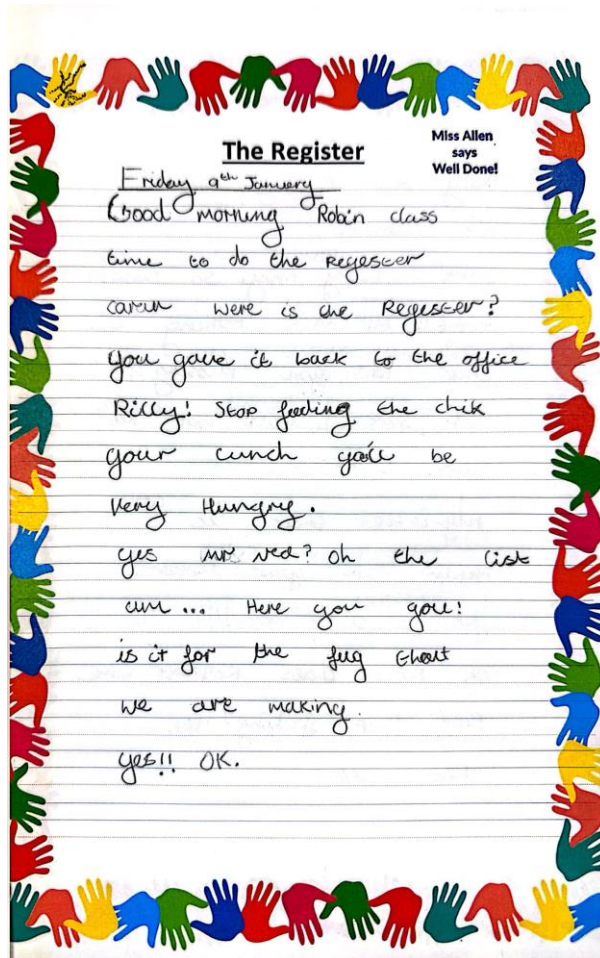 The Register
Miss Allen
says
Well Done!
Friday 9th January
Good morning Robin class
time to do the Regester
were is the Regester?
You gave it back to the office
Rilly! Stop feeding the chik
your lunch you'll be
very Hungry.
yes mr ned? Oh the list
um... Here you gou!
is it for the fug
we are making.
yes!! OK.